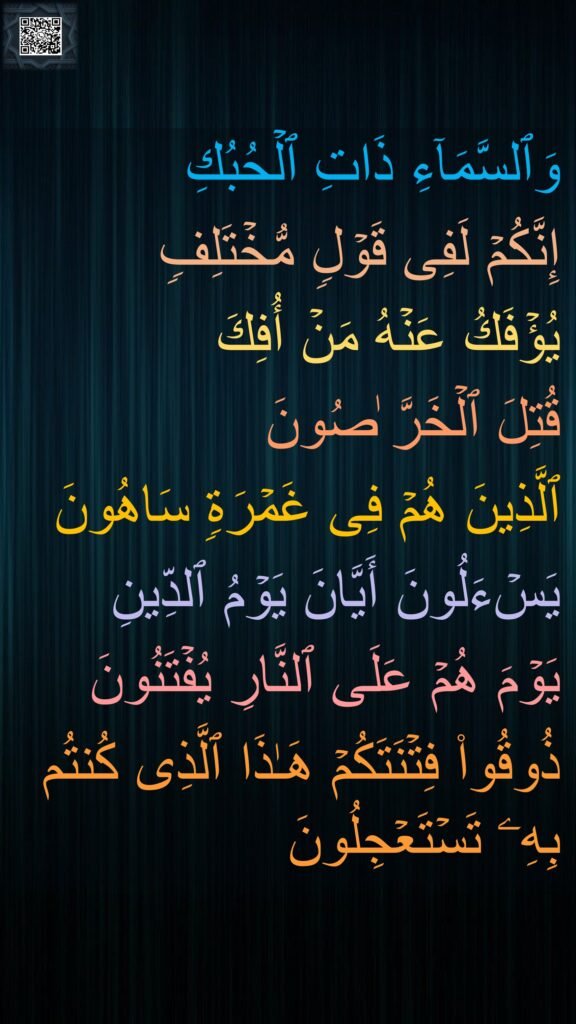 وَٱلسَّمَآءِ ذَاتِ ٱلۡحُبُكِ
إِنَّكُمۡ لَفِى قَوۡلٍ مُّخۡتَلِفٍ
يُؤۡفَكُ عَنۡهُ مَنۡ أُفِكَ
قُتِلَ ٱلۡخَرَّٰصُونَ
ٱلَّذِينَ هُمۡ فِى غَمۡرَةٍ سَاهُونَ
يَسۡـَٔلُونَ أَيَّانَ يَوۡمُ ٱلدِّينِ
يَوۡمَ هُمۡ عَلَى ٱلنَّارِ يُفۡتَنُونَ
ذُوقُواْ فِتۡنَتَكُمۡ هَـٰذَا ٱلَّذِى كُنتُم
بِهِۦ تَسۡتَعۡجِلُونَ